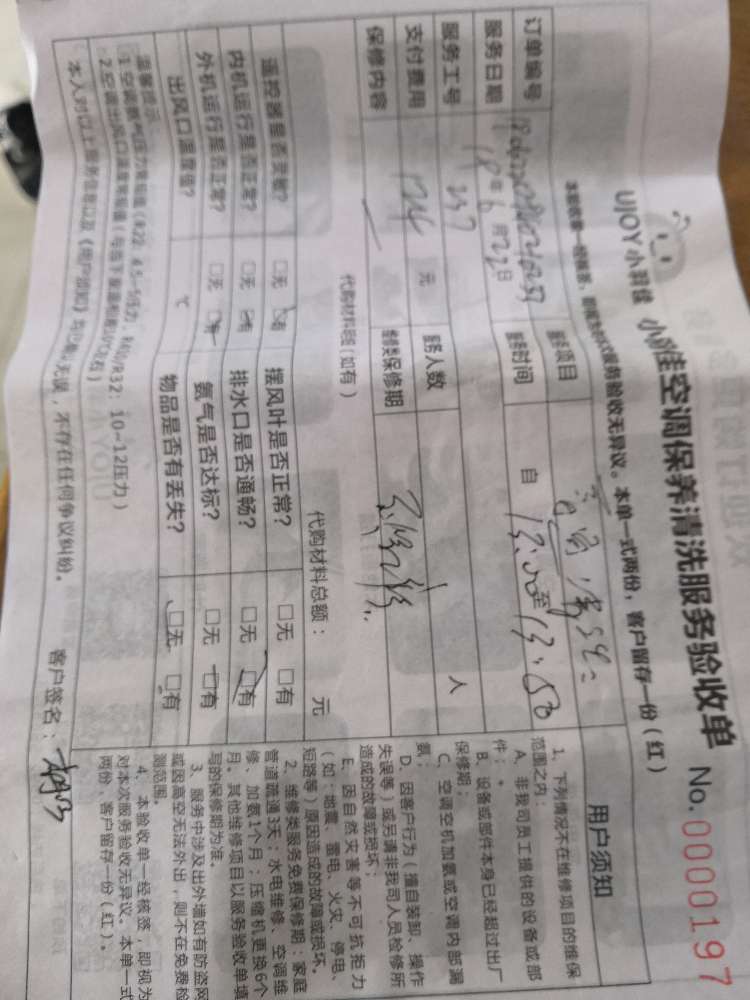 UJOY小羽佳 小羽佳空调保养清洗服务验收单 No.0000197
本验收单一经核签，即视为对本次服务验收无异议。本单一式两份，客户留存一份（红）
订单编号
服务项目
服务日期 18年6月22日
服务时间 自13:00至13:50
服务工号 237
服务人数 人
支付费用 元
保修内容
维修类保修期
代购材料明细（如有）
代购材料总额： 元
遥控器是否灵敏？ □无 □有 摆风叶是否正常？ □无 □有
内机运行是否正常？ □无 □有 排水口是否通畅？ □无 □有
外机运行是否正常？ □无 □有 氨气是否达标？ □无 □有
出风口温度值？ ℃ 物品是否有丢失？ □无 □有
温馨提示
1.空调氨气压力常规值（R22：4.5-5压力，R410/R32：10-12压力）
2.空调出风口温度常规值
本人对以上服务信息以及《用户须知》均已确认无误，不存在任何争议纠纷。
客户签名：
用户须知
1、下列情况不在维修项目的维保
范围之内：
A、非我司员工提供的设备或部
件；
B、设备或部件本身已经超过出厂
保修期；
C、空调空机加氨或空调内部漏
氨；
D、因客户行为（擅自装卸、操作
失误等）或另请非我司人员检修所
造成的故障或损坏；
E、因自然灾害等不可抗拒力
（如：地震、雷电、火灾、停电、
短路等）原因造成的故障或损坏。
2、维修类服务免费保修期：家庭
管道疏通3天；水电维修、空调维
修、加氨1个月；压缩机更换6个
月。其他维修项目以服务验收单填
写的保修期为准。
3、服务中涉及出外墙如有防盗网
或因高空无法外出，则不在免费检
测范围。
4、本验收单一经核签，即视为
对本次服务验收无异议。本单一式
两份，客户留存一份（红）。